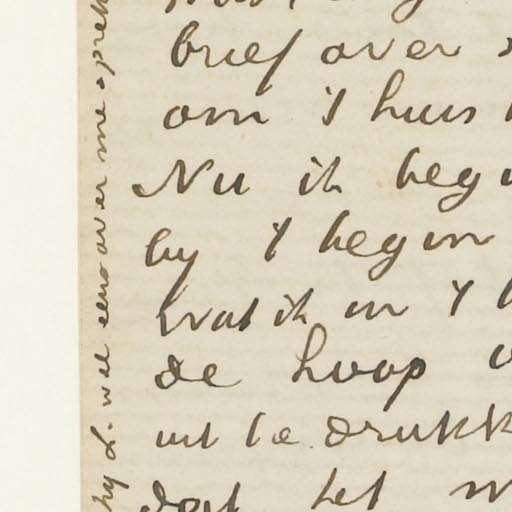 brief over
om 't huis
Nu ik beg
by 't begin
Wat ik in 't
de hoop
uit te drukk
dat het
by L. wel eens over me